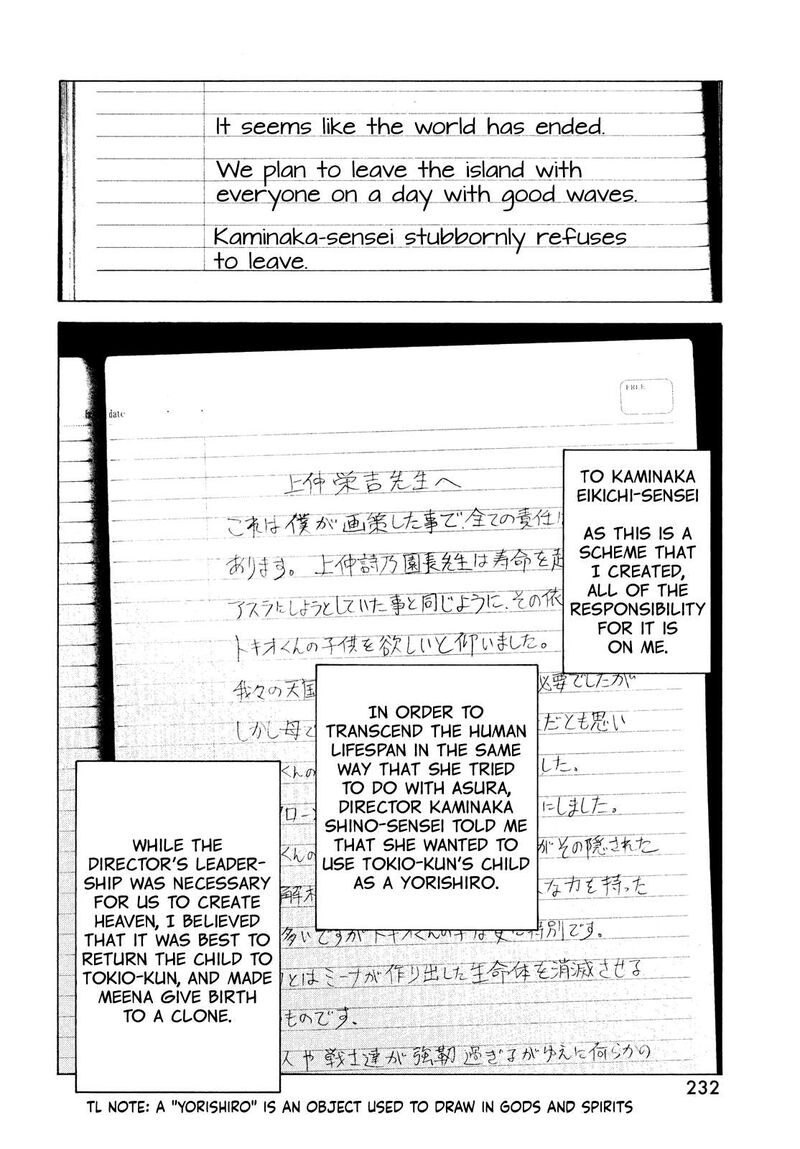 It seems like the world has ended.
We plan to leave the island with
everyone on a day with good waves.
Kaminaka-sensei stubbornly refuses
to leave.
date
FREE
上仲栄吉先生へ
これは僕が画策した事で、全ての責任は
あります。上仲詩乃園長先生は寿命を超
アスラにしようとしていた事と同じように、その依
トキオくんの子供を欲しいと仰いました。
我々の天国 必要でしたが
しかし母で だとも思い
くんの した。
ローン にしました。
くんの がその隠された
解 な力を持った
多いですがトキオくんの子は更に特別です。
とはミーナが作り出した生命体を消滅させる
ものです。
人や戦士達が強靭過ぎるがゆえに何らかの
TO KAMINAKA
EIKICHI-SENSEI
AS THIS IS A
SCHEME THAT
I CREATED,
ALL OF THE
RESPONSIBILITY
FOR IT IS
ON ME.
IN ORDER TO
TRANSCEND THE HUMAN
LIFESPAN IN THE SAME
WAY THAT SHE TRIED
TO DO WITH ASURA,
DIRECTOR KAMINAKA
SHINO-SENSEI TOLD ME
THAT SHE WANTED TO
USE TOKIO-KUN'S CHILD
AS A YORISHIRO.
WHILE THE
DIRECTOR'S LEADER-
SHIP WAS NECESSARY
FOR US TO CREATE
HEAVEN, I BELIEVED
THAT IT WAS BEST TO
RETURN THE CHILD TO
TOKIO-KUN, AND MADE
MEENA GIVE BIRTH
TO A CLONE.
232
TL NOTE: A "YORISHIRO" IS AN OBJECT USED TO DRAW IN GODS AND SPIRITS